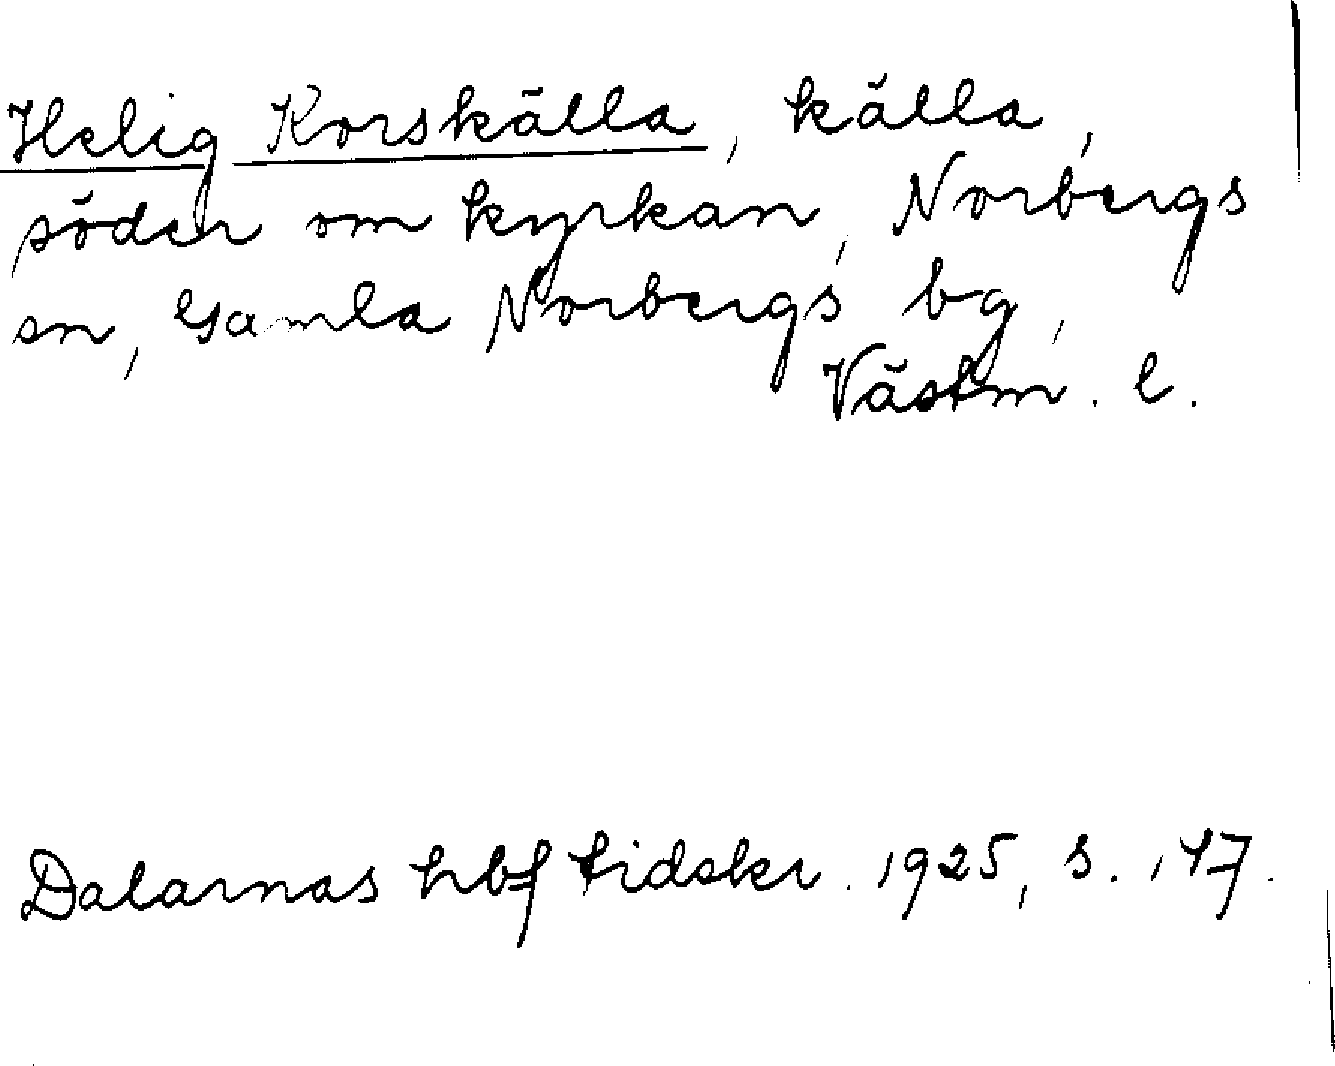 Helig Korskälla, källa,
söder om kyrkan, Norbergs
sn, Gamla Norbergs bg,
Västm. l.
Dalarnas hbf tidskr. 1925, s. 147.